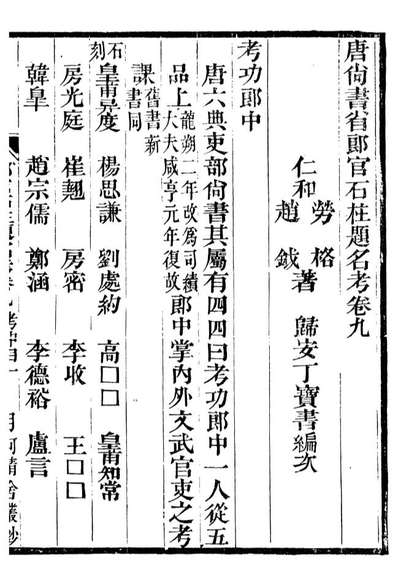 唐尙書省郎官石柱題名考卷九
仁和
勞格
趙鉞
著
歸安丁寶書編次
考功郎中
唐六典吏部尙書其屬有四四曰考功郎中一人從五
品上龍朔二年改爲司績大夫咸亨元年復故郎中掌內外文武官吏之考
課舊書新書同
石刻
皇甫异度 楊思謙 劉處約 高□□ 皇甫知常
房光庭 崔翹 房密 李收 王□□
韓臯 趙宗儒 鄭涵 李德裕 盧言
月河精舍叢鈔